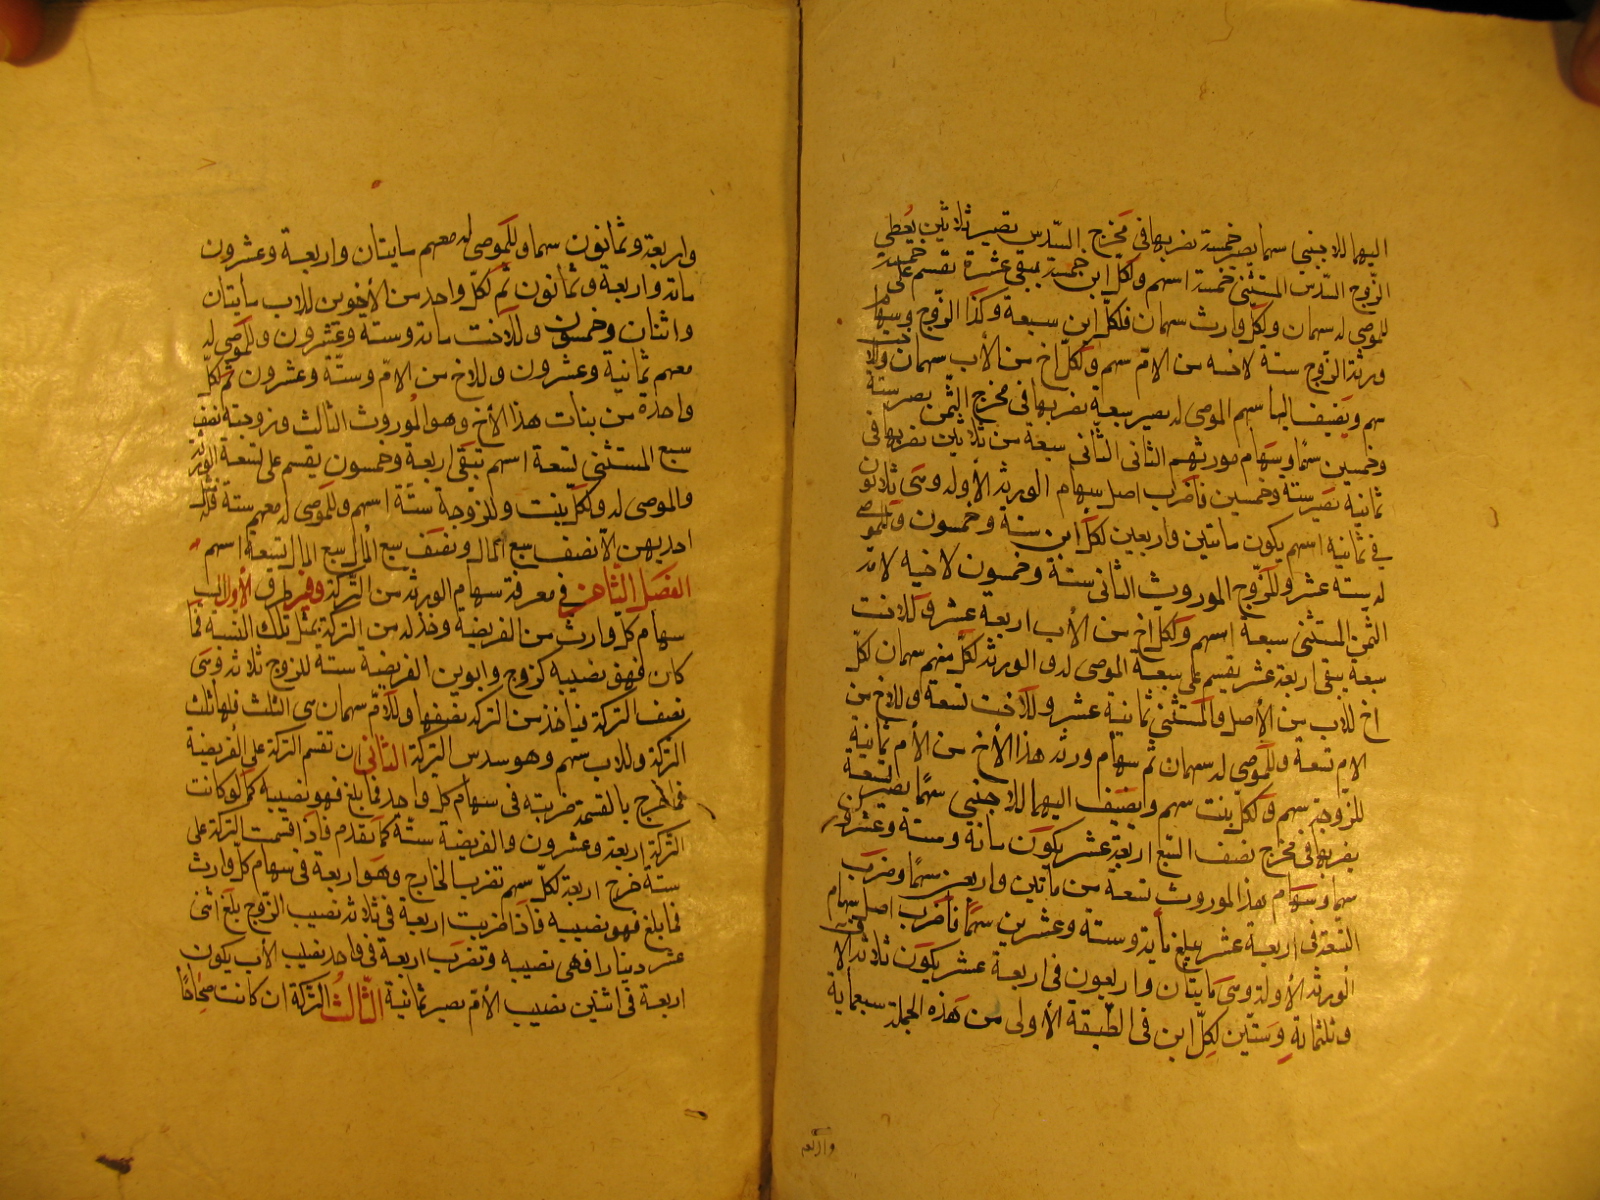 اليهما للاجنبى سهما يصير خمسة نضربها فى مخرج السّدس تصير ثلاثين يُعطى
الزّوج السّدس المستثنى خمسة اسهم ولكلّ ابن خمسة يبقى عشرة تقسم على خمسة
للموصى له سهمان ولكلّ وارث سهمان فلكلّ ابن سبعة وكذا الزّوج وسهام
ورثة الزّوج ستة لاخيه من الامّ سهم ولكلّ اخ من الأب سهمان وللاخت
سهم ويضيف اليها سهم الموصى له يصير سبعة نضربها فى مخرج الثّمن يصير ستة
وخمسين سهمًا وسهام مورثهم الثانى سبعة من ثلاثين نضربها فى
ثمانية تصير ستة وخمسين فاضرب اصل سهام الورثة الأولة وهى ثلاثون
فى ثمانية اسهم يكون مائتين واربعين لكلّ ابن ستة وخمسون وللموصى
له ستة عشر وللزّوج الموروث الثانى ستة وخمسون لاخيه لامّه
الثمن المستثنى سبعة اسهم ولكل اخ من الأب اربعة عشر وللاخت
سبعة يبقى اربعة عشر يقسم على سبعة الموصى له والورثة لكلّ منهم سهمان لكلّ
اخ للاب من الأصل والمستثنى ثمانية عشر وللأخت تسعة وللاخ من
الام تسعة وللموصى له سهمان ثم سهام ورثة هذا الأخ من الأم ثمانية
للزّوجة سهم ولكلّ بنت سهم ويضيف اليهما للاجنبى سهمًا يصير تسعة
يضربها فى مخرج نصف السّبع اربعة عشر يكون مائة وستة وعشرون
سهما وسهام هذا الموروث تسعة من مائتين واربعين سهمًا وضرب
التسعة فى اربعة عشر يبلغ مأية وستة وعشرين سهمًا فاضرب اصل سهام
الورثة الأولة وهى مايتان واربعون فى اربعة عشر يكون ثلاثة الاف
وثلثمائة وستّين لكلّ ابن فى الطبقة الأولى من هذه الجملة سبعماية
واربعة
واربعة وثمانون سهما وللموصى له معهم مايتان واربعة وعشرون
مائة واربعة وثمانون ثم لكلّ واحد من الأخوين للاب مايتان
واثنان وخمسون وللأخت مائة وستة وعشرون وللموصى له
معهم ثمانية وعشرون وللاخ من الامّ وستّة وعشرون ثمّ لكلّ
واحدة من بنات هذا الأخ وهو الموروث الثالث وزوجته نصف
سبع المستثنى تسعة اسهم تبقى اربعة وخمسون يقسم على تسعة الورثة
والموصى له ولكلّ بنت وللزّوجة ستّة اسهم وللموصى له معهم ستة فلكل
احديهن الأنصف سبع المال ونصف سبع المال سبع المال تسعة اسهم
الفصل الثامن فى معرفة سهام الورثة من التّركة وفيه طرق الأول انسب
سهام كلّ وارث من الفريضة وخذ له من التركة بمثل تلك النسبة فما
كان فهو نصيبه كزوج وابوين الفريضة ستة للزوج ثلاثة وهى
نصف التركة فياخذ من التركة نصفها وللأمّ سهمان هى الثلث فلها ثلث
التركة وللاب سهم وهو سدس التركة الثانى ان تقسم التركة على الفريضة
فما خرج بالقسمة ضربته فى سهام كل واحد فما بلغ فهو نصيبه كما لو كانت
التركة اربعة وعشرون والفريضة ستّة كما تقدم فاذا قسمت التركة على
ستة خرج اربعة لكلّ سهم تضرب الخارج وهو اربعة فى سهام كلّ وارث
فما بلغ فهو نصيبه فاذا ضربت اربعة فى ثلاثة نصيب الزّوج بلغ اثنى
عشر دينارا فهى نصيبه وتضرب اربعة فى واحد نصيب الأب يكون
اربعة فى اثنين نصيب الأمّ يصير ثمانية الثّالث التركة ان كانت صحاحًا